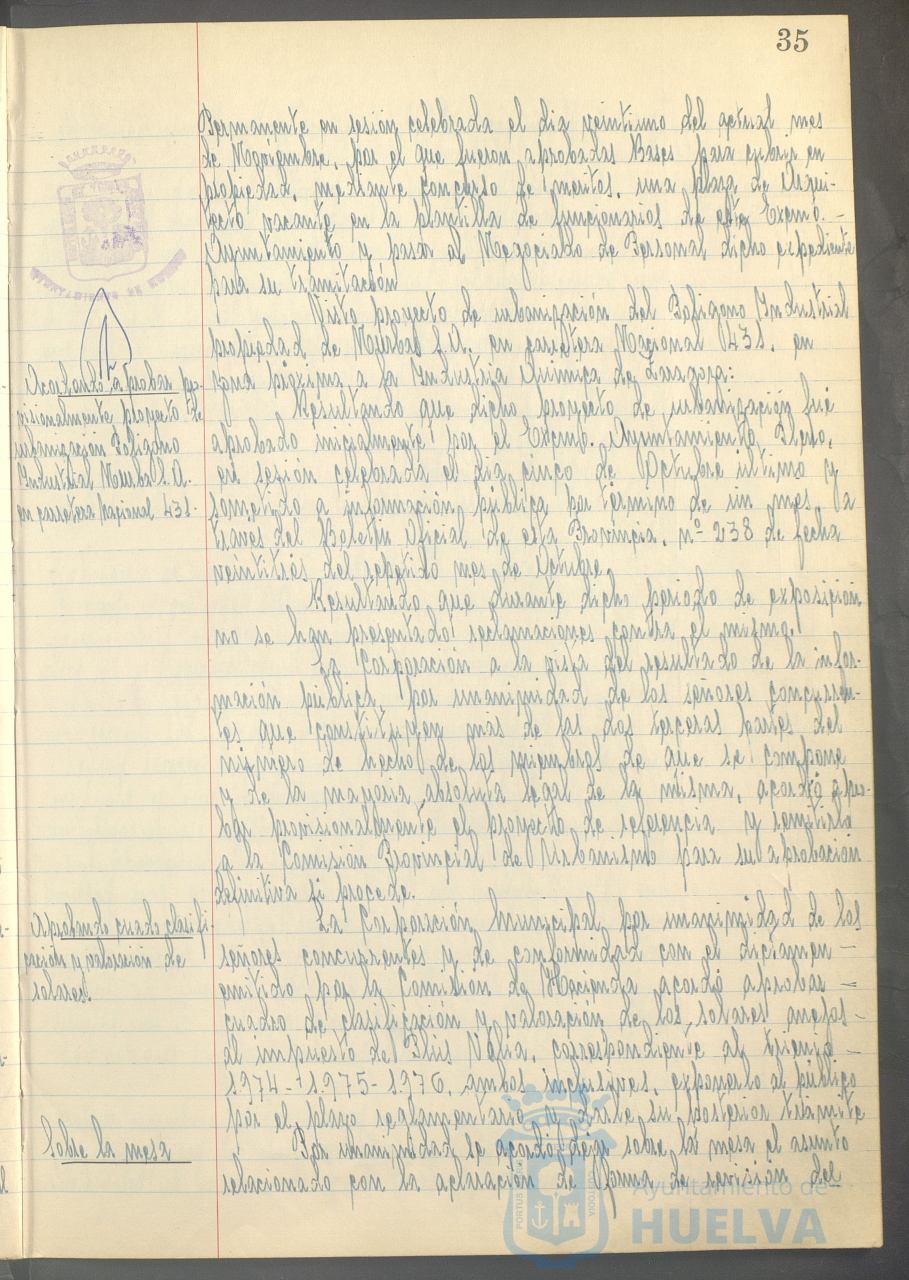 35
Permanente en sesión celebrada el dia veintiuno del actual mes
de Noviembre, por el que fueron aprobadas Bases para cubrir en
propiedad, mediante concurso de meritos, una plaza de Arqui-
tecto vacante en la plantilla de funcionarios de este Excmo. -
Ayuntamiento y pasar al Negociado de Personal dicho expediente
para su tramitación
Visto proyecto de urbanización del Poligono Industrial
propiedad de Meurbas S.A. en carretera Nacional 431, en
zona próxima a la Industria Quimica de Zuazora:
Acordando aprobar pro-
visionalmente proyecto de
urbanización Poligono
Industrial Meurba S.A.
en carretera Nacional 431.
Resultando que dicho proyecto de urbanización fué
aprobado inicialmente por el Excmo. Ayuntamiento Pleno,
en sesión celebrada el dia cinco de Octubre ultimo y
sometido a información pública por término de un mes, a
traves del Boletin Oficial de esta Provincia, nº 238 de fecha
veintitrés del repetido mes de Octubre.
Resultando que durante dicho periodo de exposición
no se han presentado reclamaciones contra el mismo.
La Corporación a la vista del resultado de la infor-
mación pública, por unanimidad de los señores concurren-
tes que constituyen mas de las dos terceras partes del
número de hecho de los miembros de que se compone
y de la mayoria absoluta legal de la misma, acordó apro-
bar provisionalmente el proyecto de referencia y remitirlo
a la Comisión Provincial de Urbanismo para su aprobación
definitiva si procede.
Aprobando cuadro clasifi-
cación y valoración de
solares.
La Corporación Municipal por unanimidad de los
señores concurrentes y de conformidad con el dictamen -
emitido por la Comisión de Hacienda acordó aprobar -
cuadro de clasificación y valoración de los solares anejos -
al impuesto de Plus Valia, correspondiente al trienio -
1974-1975-1976, ambos inclusives, exponerlo al público
por el plazo reglamentario y darle su posterior trámite
Sobre la mesa
Por unanimidad se acordó dejar sobre la mesa el asunto
relacionado con la aclaración de forma de revisión del
Ayuntamiento de
HUELVA